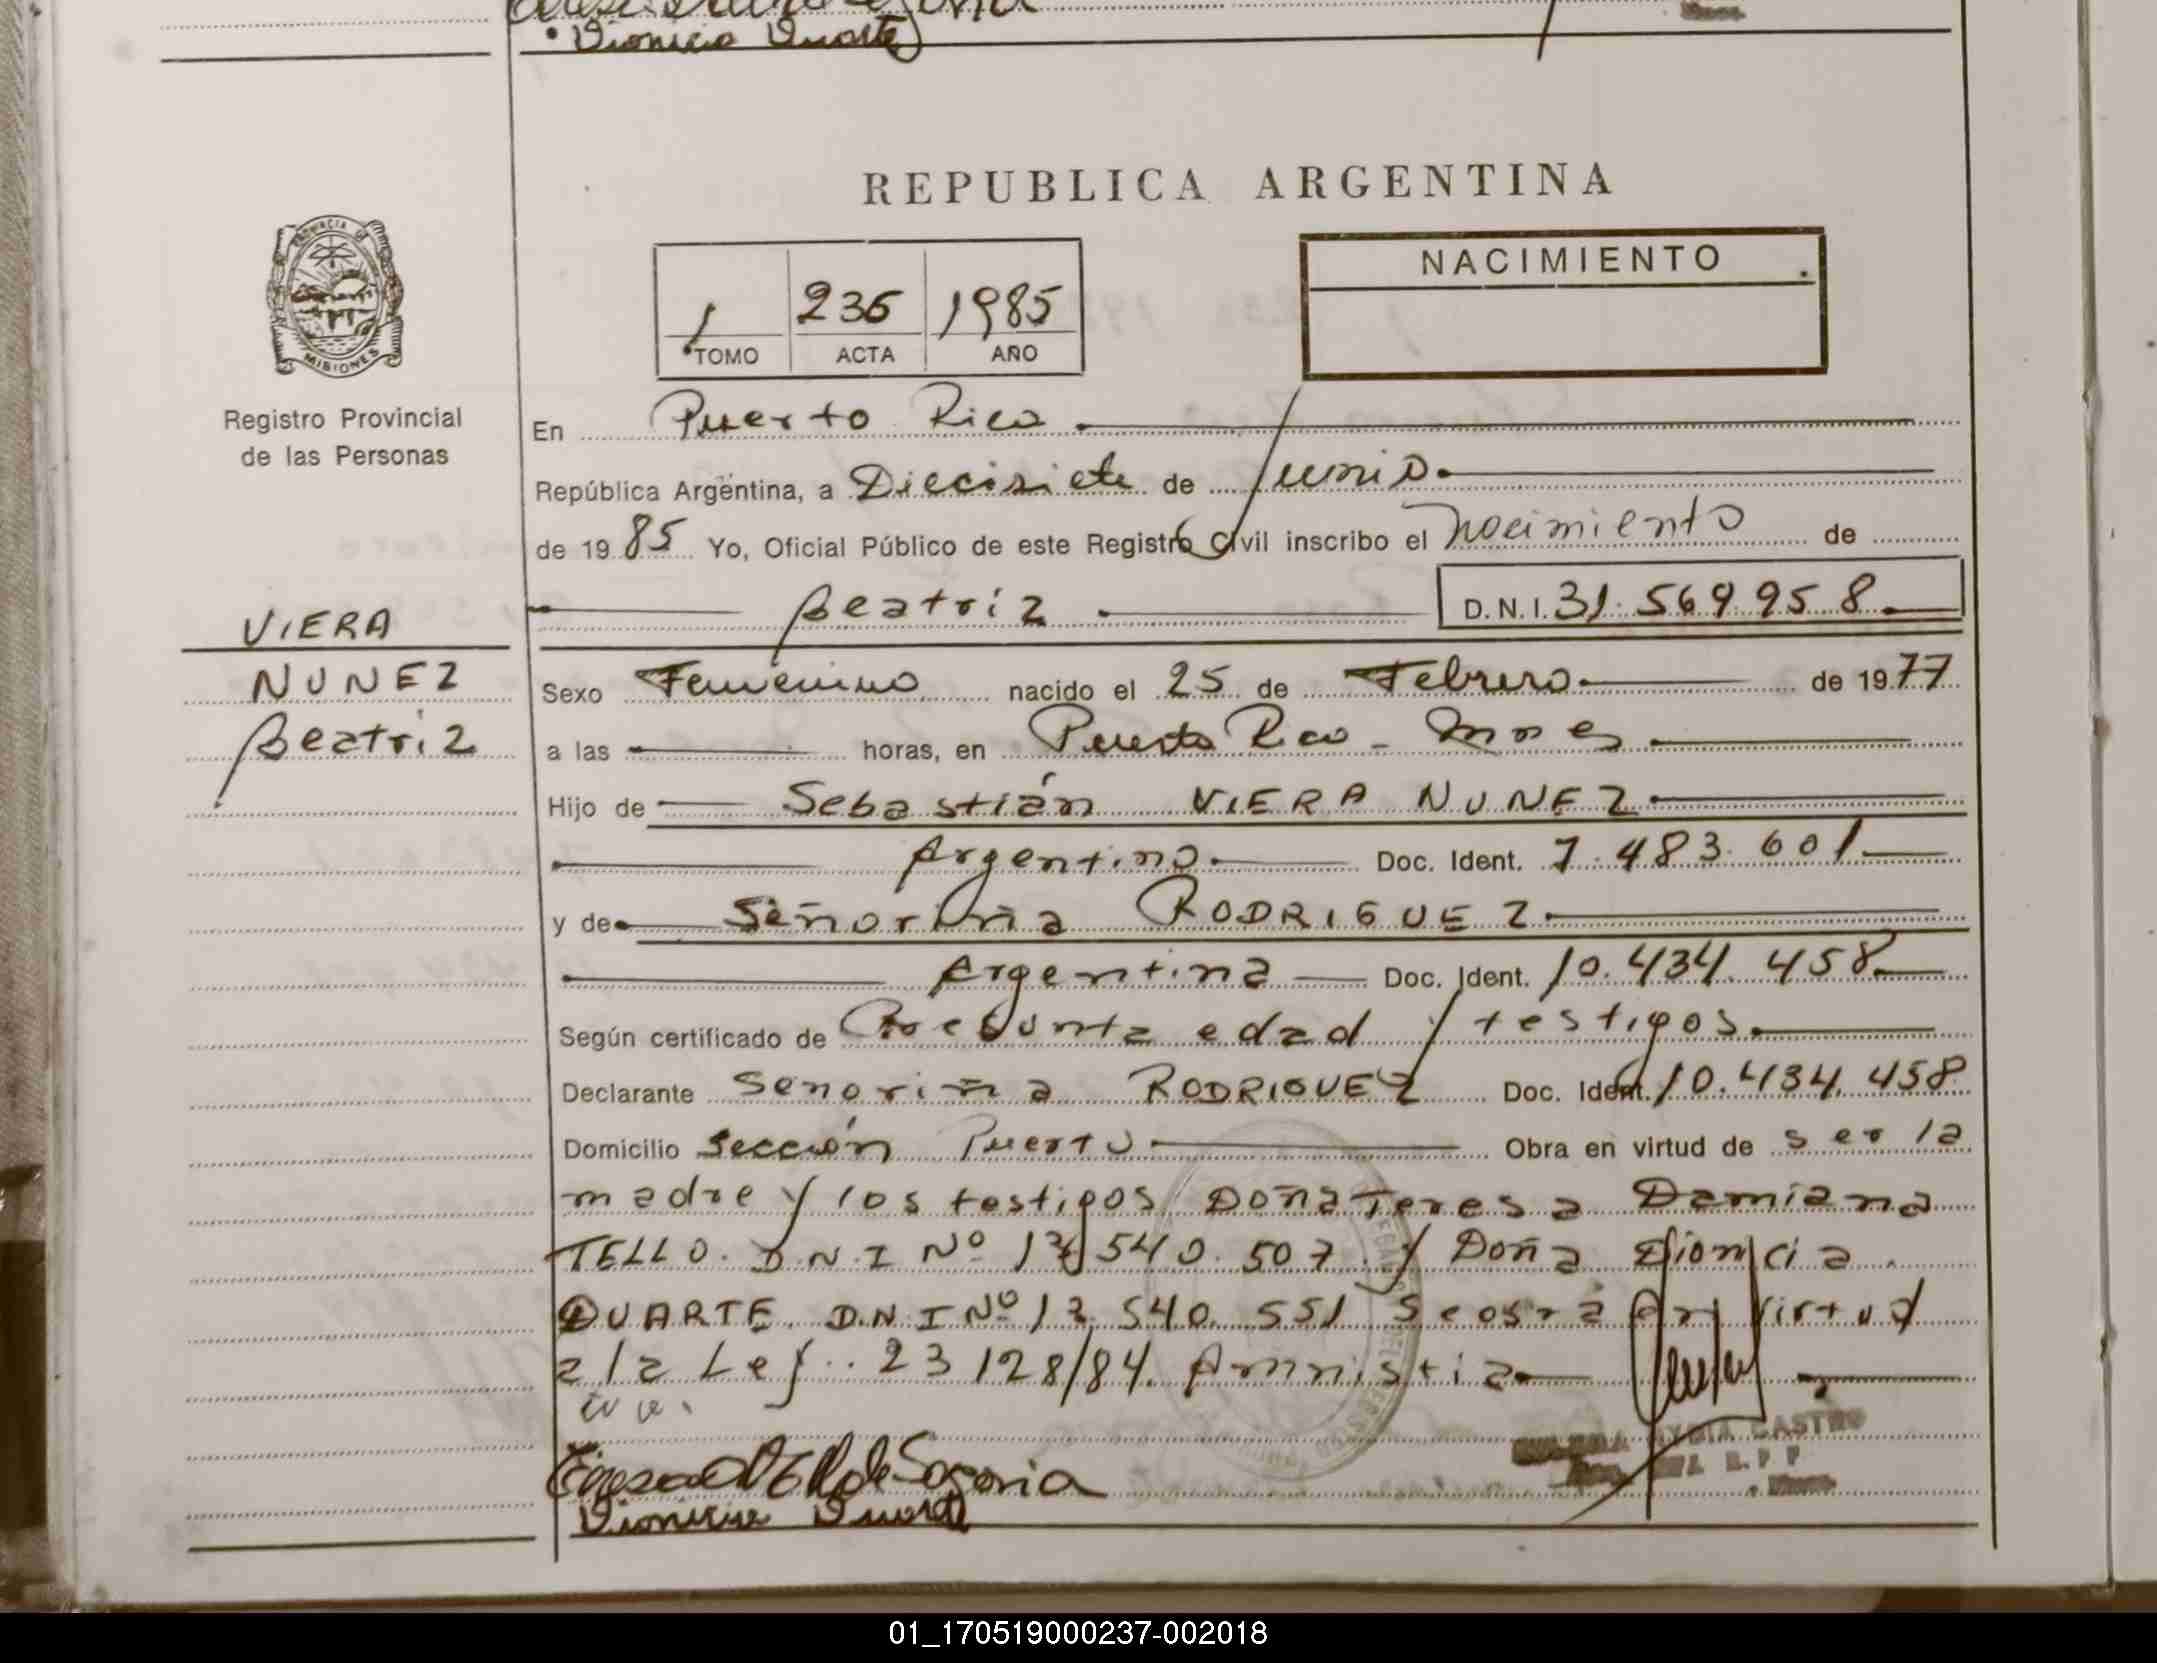 Dionicia Duarte
REPUBLICA ARGENTINA
PROVINCIA DE
MISIONES
Registro Provincial
de las Personas
1 236 1985
TOMO ACTA AÑO
NACIMIENTO
En Puerto Rico
República Argentina, a Diecisiete de Junio
de 19 85 Yo, Oficial Público de este Registro Civil inscribo el Nacimiento de
Beatriz D.N.I. 31.569.958
VIERA
NUNEZ
Beatriz
Sexo Femenino nacido el 25 de Febrero de 1977
a las horas, en Puerto Rico - Mnes
Hijo de Sebastián VIERA NUNEZ
Argentino Doc. Ident. 7.483.601
y de Señorina RODRIGUEZ
Argentina Doc. Ident. 10.434.458
Según certificado de Presunta edad y testigos
Declarante Senorina RODRIGUEZ Doc. Ident. 10.434.458
Domicilio Sección Puerto Obra en virtud de ser la
madre y los testigos Doña Teresa Damiana
TELLO. D.N.I Nº 17 540.507 y Doña Dionicia
DUARTE D.N.I Nº 12 540.551 Se obra en virtud
a la Ley 23128/84. Amnistia
LYDIA CASTRO
R.P.P
Dionicia Duarte
01_170519000237-002018